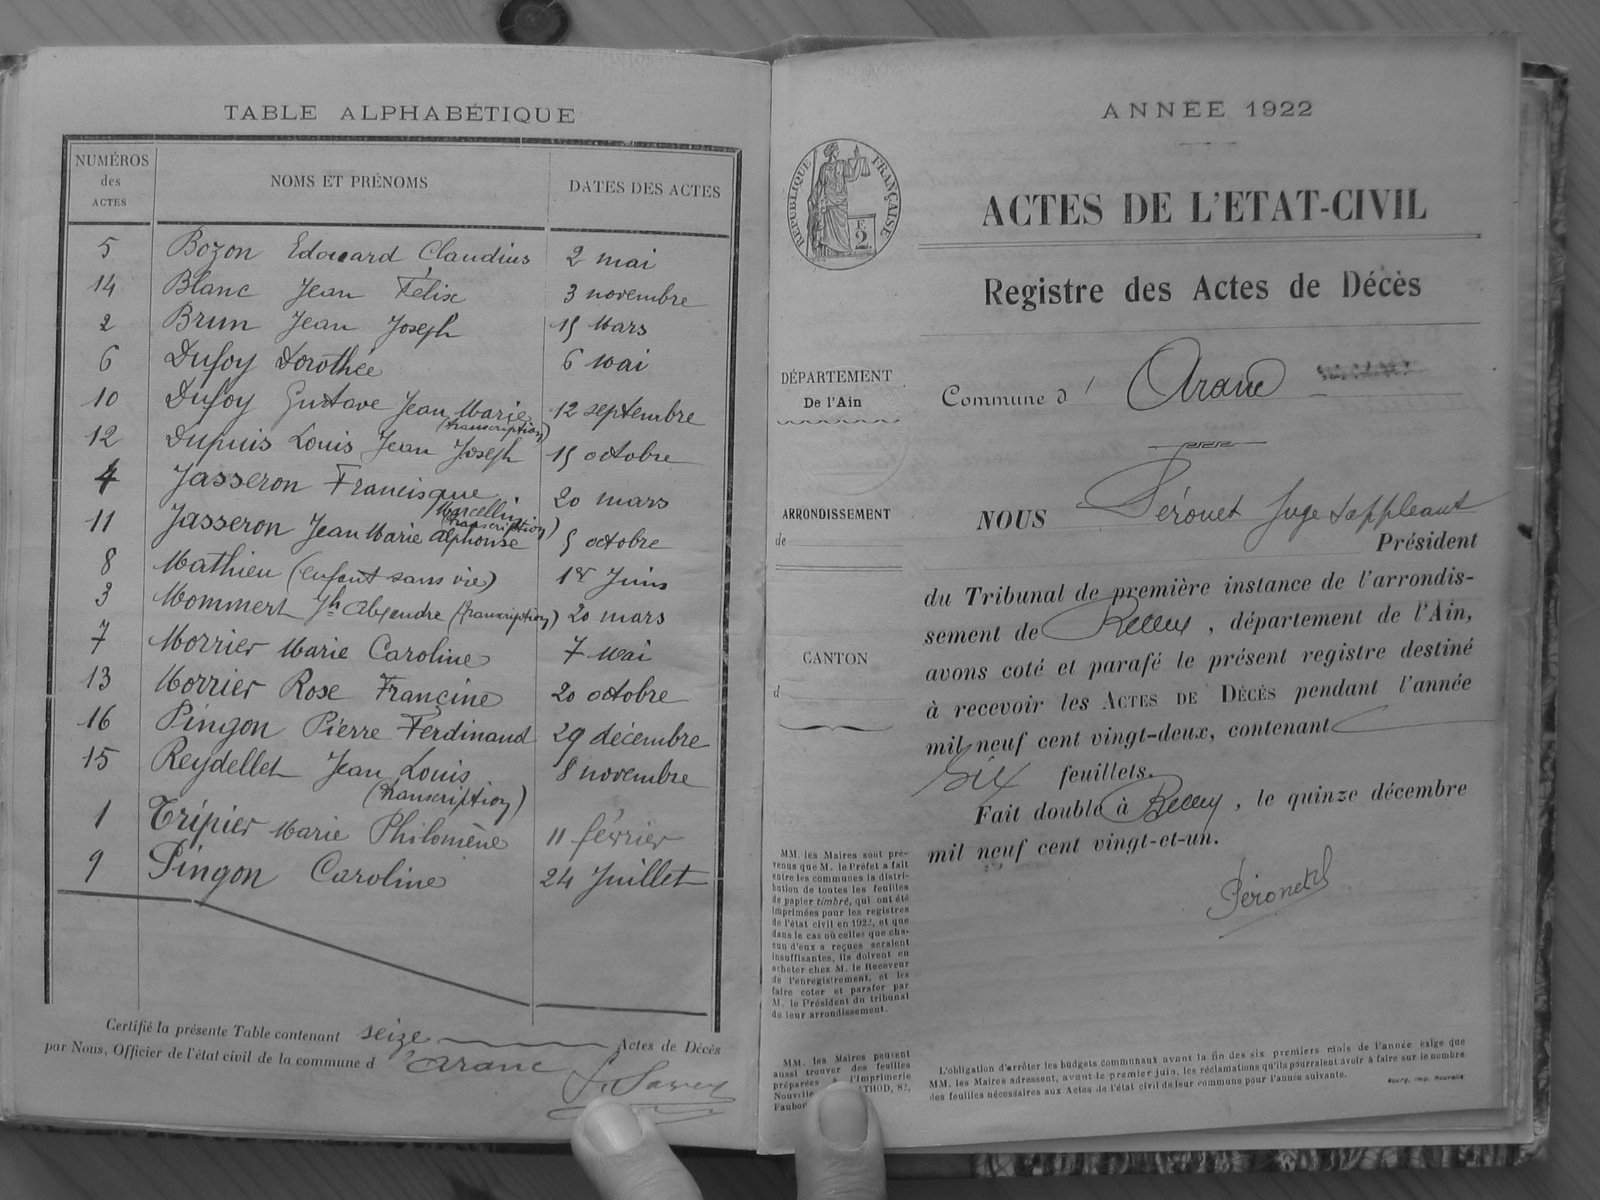 TABLE ALPHABÉTIQUE
NUMÉROS des ACTES
NOMS ET PRÉNOMS
DATES DES ACTES
5 Bozon Edouard Claudius 2 mai
14 Blanc Jean Félix 3 novembre
2 Brun Jean Joseph 15 Mars
6 Dufoy Dorothée 6 mai
10 Dufoy Gustave Jean Marie 12 septembre
(transcription)
12 Dupuis Louis Jean Joseph 15 octobre
4 Jasseron Francisque 20 mars
Marcellin
(transcription)
11 Jasseron Jean Marie Alphonse 5 octobre
8 Mathieu (enfant sans vie) 1er Juin
3 Mommert Jh Alexandre (transcription) 20 mars
7 Morrier Marie Caroline 7 mai
13 Morrier Rose Francine 20 octobre
16 Pingon Pierre Ferdinand 29 décembre
15 Reydellet Jean Louis 8 novembre
(transcription)
1 Tripier Marie Philomène 11 février
9 Pingon Caroline 24 Juillet
Certifié la présente Table contenant seize Actes de Décès
par Nous, Officier de l'état civil de la commune d'Aranc
ANNÉE 1922
RÉPUBLIQUE FRANÇAISE
2
ACTES DE L'ETAT-CIVIL
Registre des Actes de Décès
DÉPARTEMENT
De l'Ain
Commune d' Aranc
ARRONDISSEMENT
de
NOUS Péronet Juge Suppleant
Président
du Tribunal de première instance de l'arrondis-
sement de Belley, département de l'Ain,
avons coté et parafé le présent registre destiné
à recevoir les ACTES DE DÉCÈS pendant l'année
mil neuf cent vingt-deux, contenant
six feuillets.
Fait double à Belley, le quinze décembre
mil neuf cent vingt-et-un.
Péronet
CANTON
d
MM. les Maires sont pré-
venus que M. le Préfet a fait
faire les communes la distri-
bution de toutes les feuilles
de papier timbré, qui ont été
imprimées pour les registres
de l'état civil en 1922, et que
dans le cas où celles que cha-
cun d'eux a reçues seraient
insuffisantes, ils doivent en
acheter chez M. le Receveur
de l'enregistrement, et les
faire coter et parafer par
M. le Président du tribunal
de leur arrondissement.
MM. les Maires peuvent
aussi trouver des feuilles
préparées à l'Imprimerie
Nouvelle THOD, 82,
Faubo
L'obligation d'arrêter les budgets communaux avant la fin des six premiers mois de l'année exige que
MM. les Maires adressent, avant le premier juin, les réclamations qu'ils pourraient avoir à faire sur le nombre
des feuilles nécessaires aux Actes de l'état civil de leur commune pour l'année suivante.
Bourg, Imp. Nouvelle